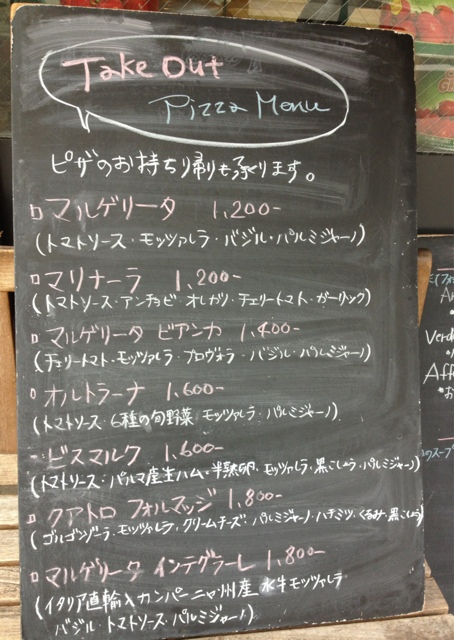 Take Out
Pizza Menu
ピザのお持ち帰りも承ります。
□マルゲリータ 1,200-
(トマトソース・モッツァレラ・バジル・パルミジャーノ)
□マリナーラ 1,200-
(トマトソース・アンチョビ・オレガノ・チェリートマト・ガーリック)
□マルゲリータ ビアンカ 1,400-
(チェリートマト・モッツァレラ・プロヴォラ・バジル・パルミジャーノ)
□オルトラーナ 1,600-
(トマトソース・6種の旬野菜 モッツァレラ・パルミジャーノ)
□ビスマルク 1,600-
(トマトソース・パルマ産生ハム・半熟卵・モッツァレラ・黒こしょう・パルミジャーノ)
□クアトロ フォルマッジ 1,800-
(ゴルゴンゾーラ・モッツァレラ・クリームチーズ・パルミジャーノ・ハチミツ・くるみ・黒こしょう)
□マルゲリータ インテグラーレ 1,800-
(イタリア直輸入カンパーニャ州産 水牛モッツァレラ
バジル・トマトソース・パルミジャーノ)
Verd
Aff
のスープ